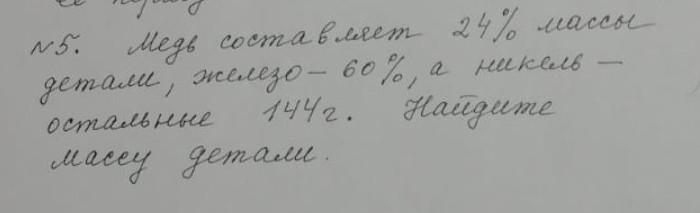 №5. Медь составляет 24% массы
детали, железо – 60%, а никель –
остальные 144г. Найдите
массу детали.